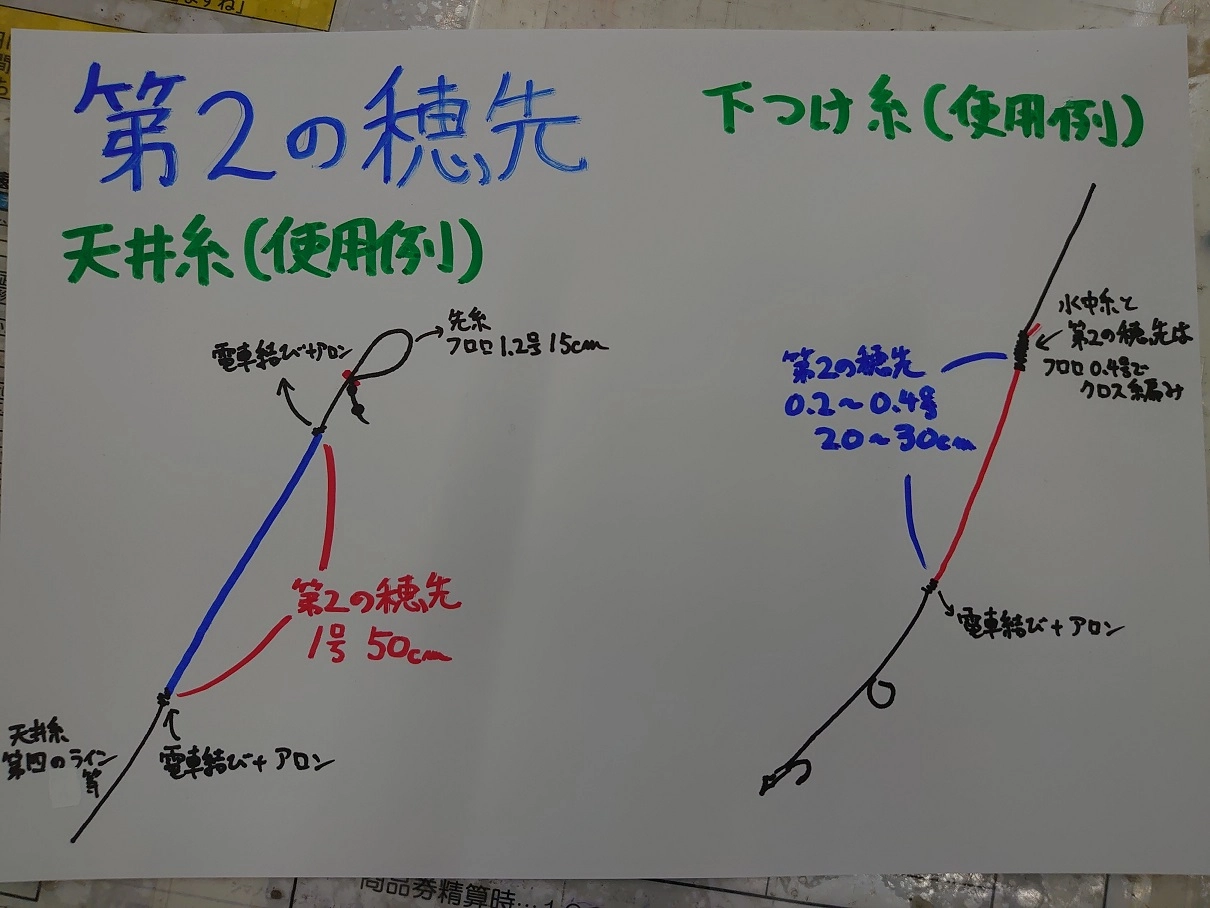 第2の穂先
天井糸(使用例)
電車結び+アロン
先糸
フロロ1.2号15cm
第2の穂先
1号50cm
天井糸
第四のライン
等
電車結び+アロン
下つけ糸(使用例)
水中糸と
第2の穂先は
フロロ0.4号で
クロス編み
第2の穂先
0.2〜0.4号
20〜30cm
電車結び+アロン
商品券精算時…